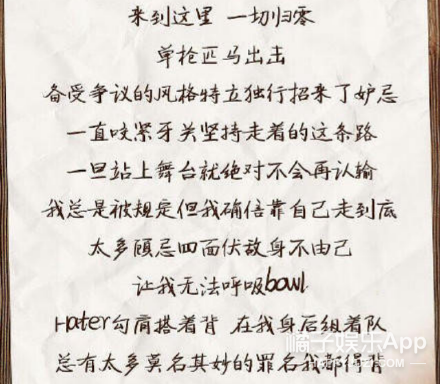 来到这里 一切归零
单枪匹马出击
备受争议的风格特立独行招来了妒忌
一直咬紧牙关坚持走着的这条路
一旦站上舞台就绝对不会再认输
我总是被规定但我确信靠自己走到底
太多顾忌四面伏敌身不由己
让我无法呼吸bowl
Hater勾肩搭着背 在我身后组着队
总有太多莫名其妙的罪名我都得背
橘子娱乐App